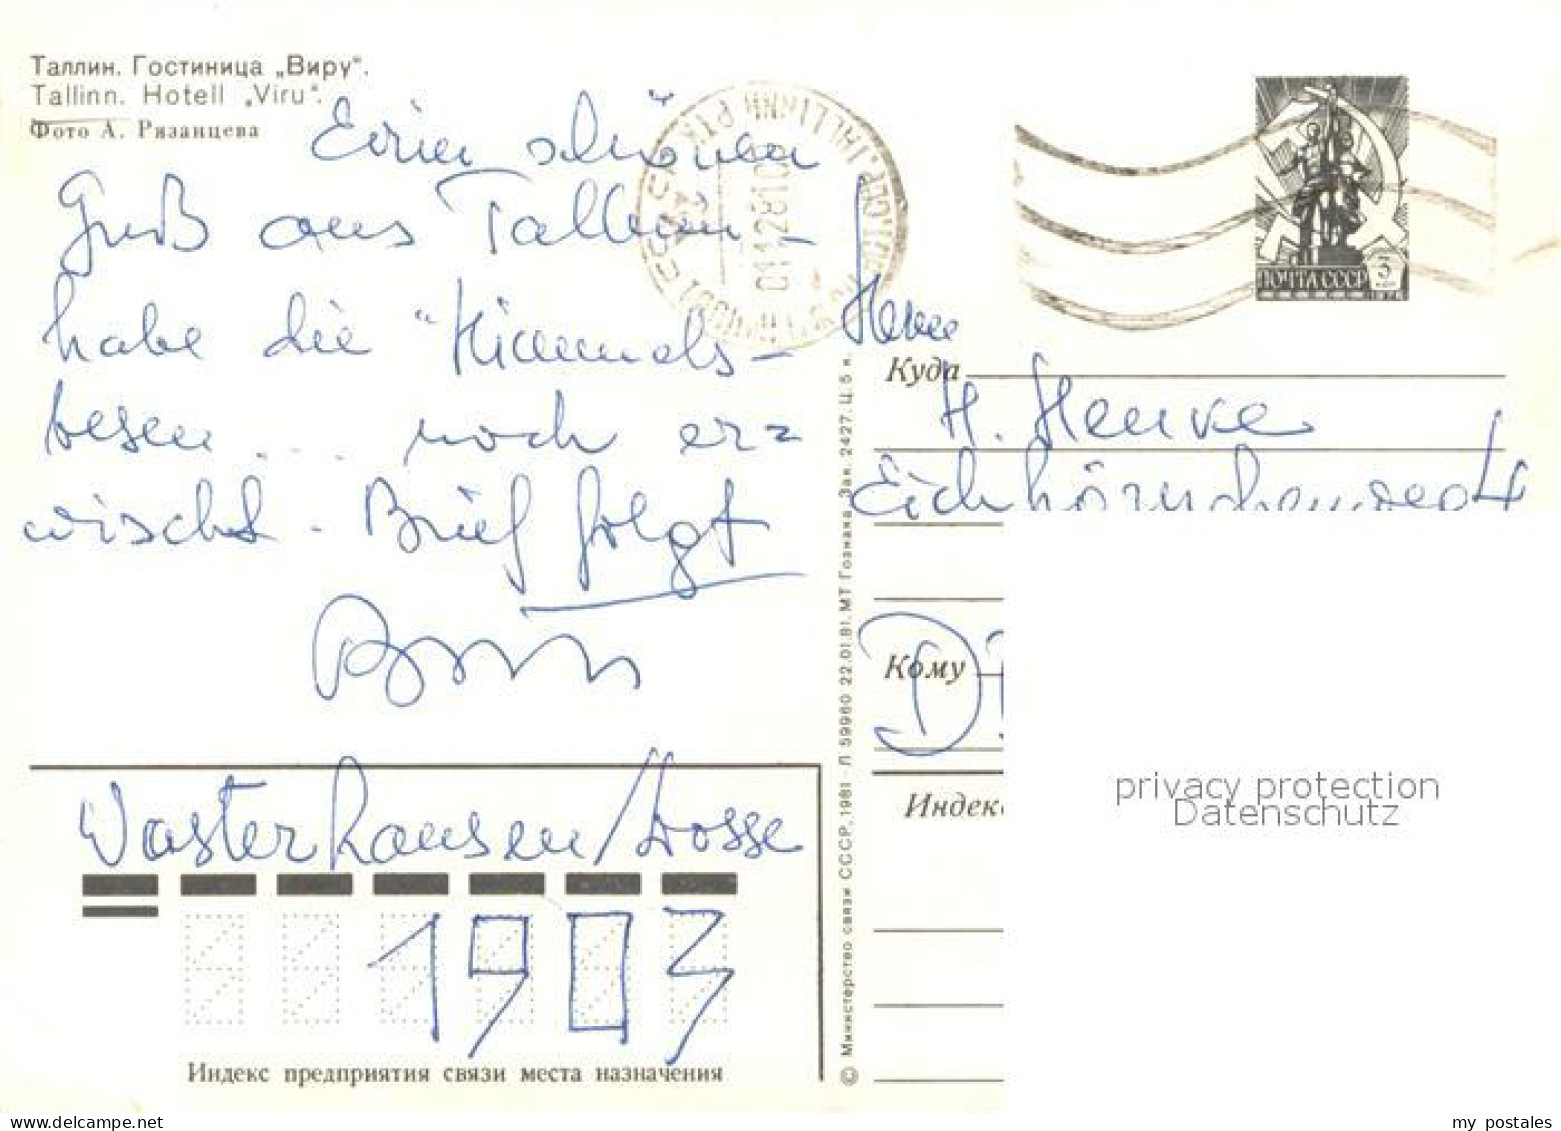 Таллин. Гостиница „Виру“.
Tallinn. Hotell „Viru“.
Фото А. Рязанцева
Einen schönen
Gruß aus Tallinn -
habe die "Himmels-
besen ... noch er=
wischt. Brief folgt
ПОЧТА СССР 3
Куда
H. Henke
Eichhörnchenweg 4
Кому
D
Индек
Wusterhausen/Dosse
1903
Индекс предприятия связи места назначения
© Министерство связи СССР, 1981 - Л 59960 22.01.81. МТ Гознака. Зак. 2427. Ц. 5 к.
privacy protection
Datenschutz
my postales